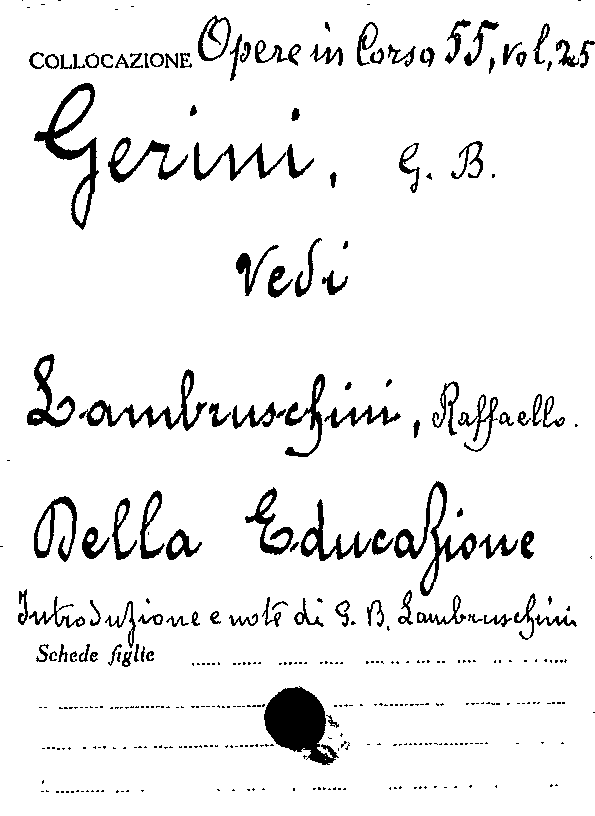 COLLOCAZIONE Opere in Corso 55, vol, 25
Gerini, G. B.
Vedi
Lambruschini, Raffaello.
Della Educazione
Introduzione e note di G. B. Lambruschini
Schede figlie